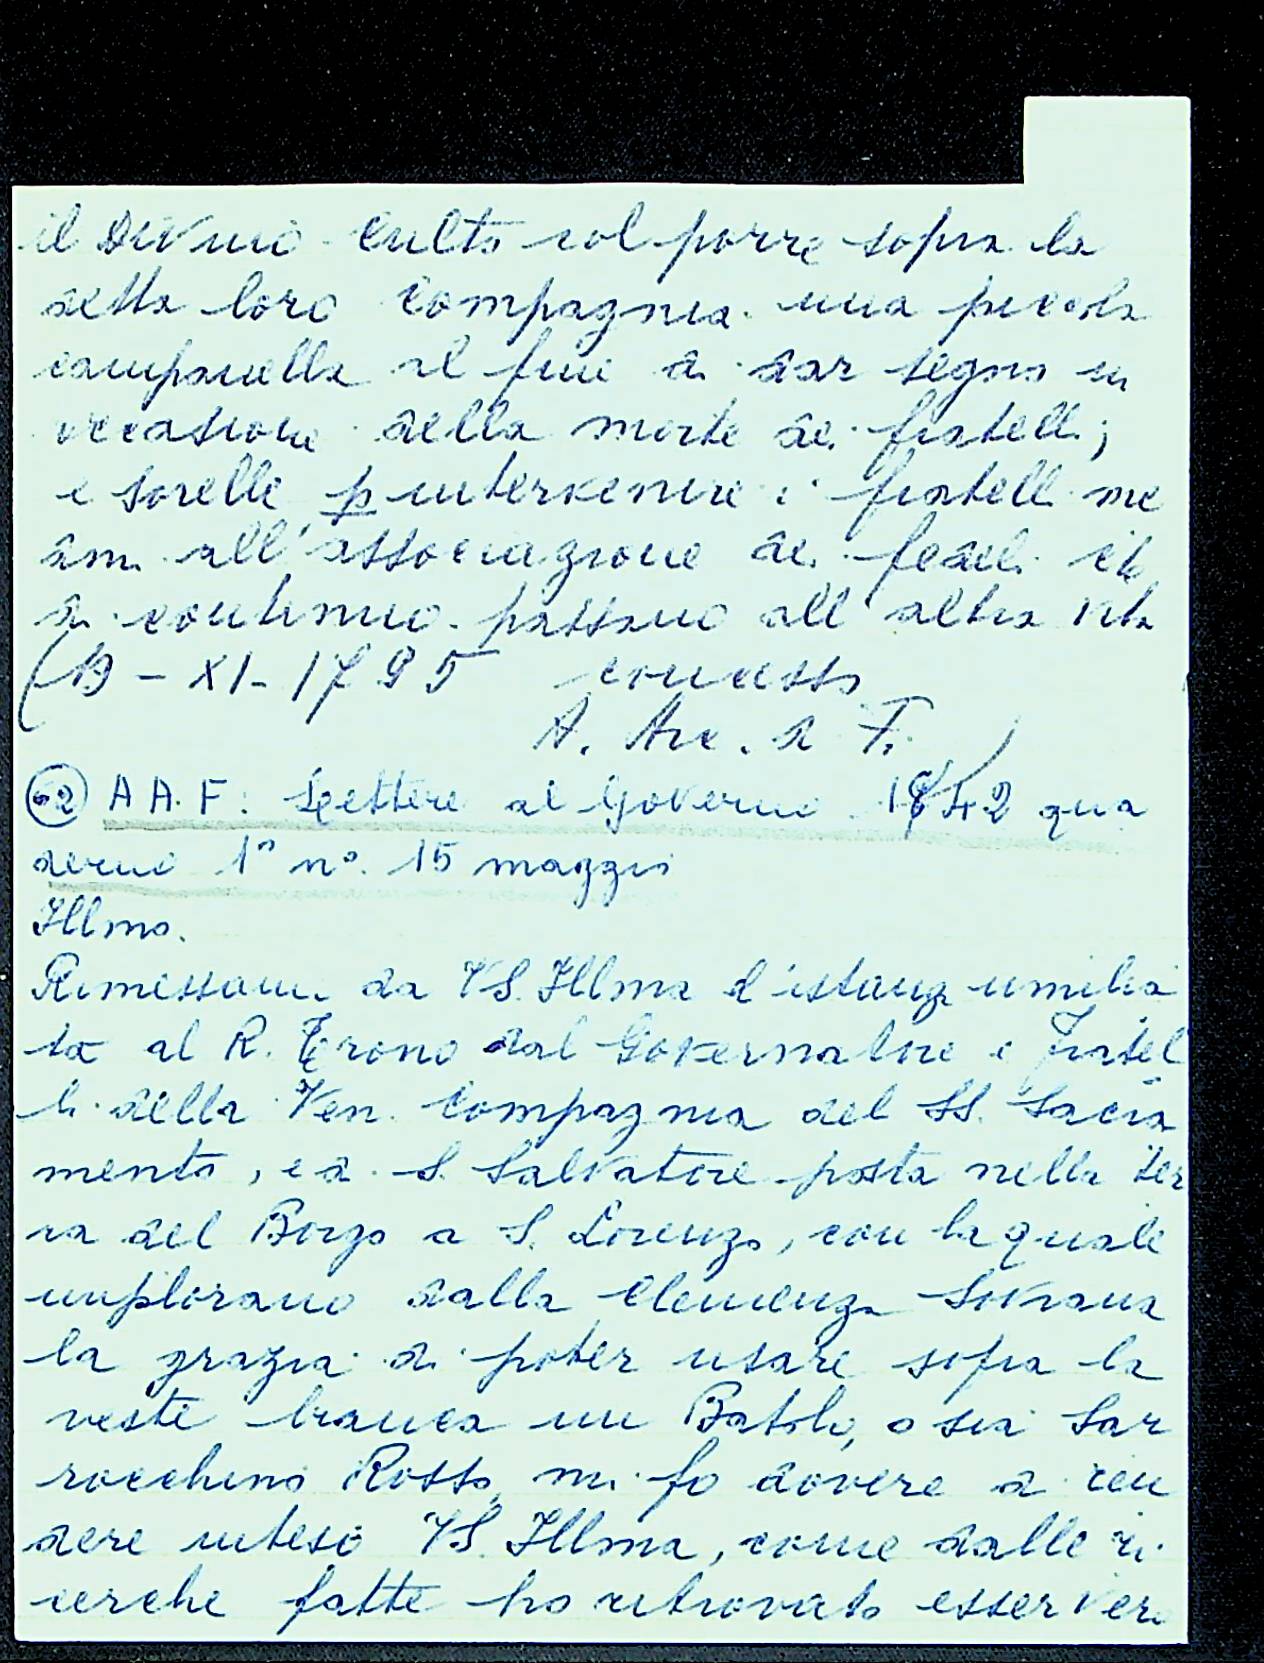 il Divino Culto col porre sopra la
detta loro Compagnia una piccola
campanella al fine di dar segno in
occasione della morte dei fratelli;
e sorelle p intervenire i fratelli me
dmi all'associazione dei fedeli che
di continuo passano all'altra vita
(19-XI-1795 concesso
A. Arc. di F.)
62 A A. F: Lettere al Governo 1842 qua
derno 1° n°. 15 maggio
Illmo.
Rimessami da VS. Illma l'istanza umilia
ta al R. Trono dal Governatore e Fratel
li della Ven. Compagnia del SS. Sacra
mento, e di S. Salvatore posta nella ter
ra del Borgo a S. Lorenzo, con la quale
implorano dalla Clemenza Sovrana
la grazia di poter usare sopra la
veste bianca un Batolo, o sia Sar
rocchino Rosso, mi fo dovere di ren
dere inteso VS. Illma, come dalle ri
cerche fatte ho ritrovato esser vero